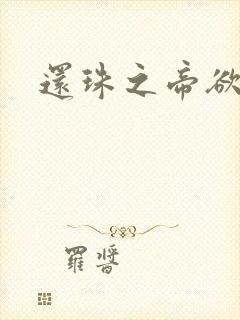 還珠之帝欲
羅醬